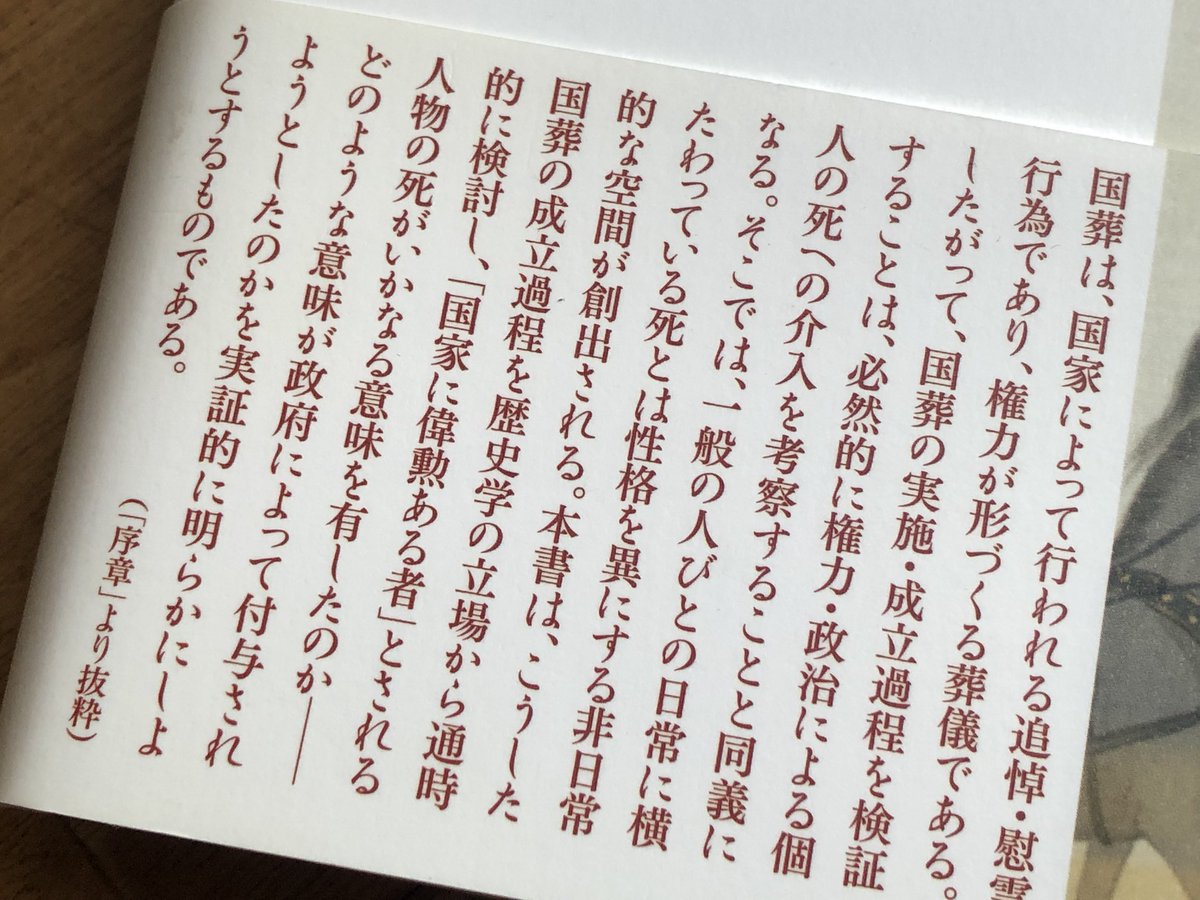 国葬は、国家によって行われる追悼・慰霊
行為であり、権力が形づくる葬儀である。
したがって、国葬の実施・成立過程を検証
することは、必然的に権力・政治による個
人の死への介入を考察することと同義に
なる。そこでは、一般の人びとの日常に横
たわっている死とは性格を異にする非日常
的な空間が創出される。本書は、こうした
国葬の成立過程を歴史学の立場から通時
的に検討し、「国家に偉勲ある者」とされる
人物の死がいかなる意味を有したのか――
どのような意味が政府によって付与され
ようとしたのかを実証的に明らかにしよ
うとするものである。
（「序章」より抜粋）